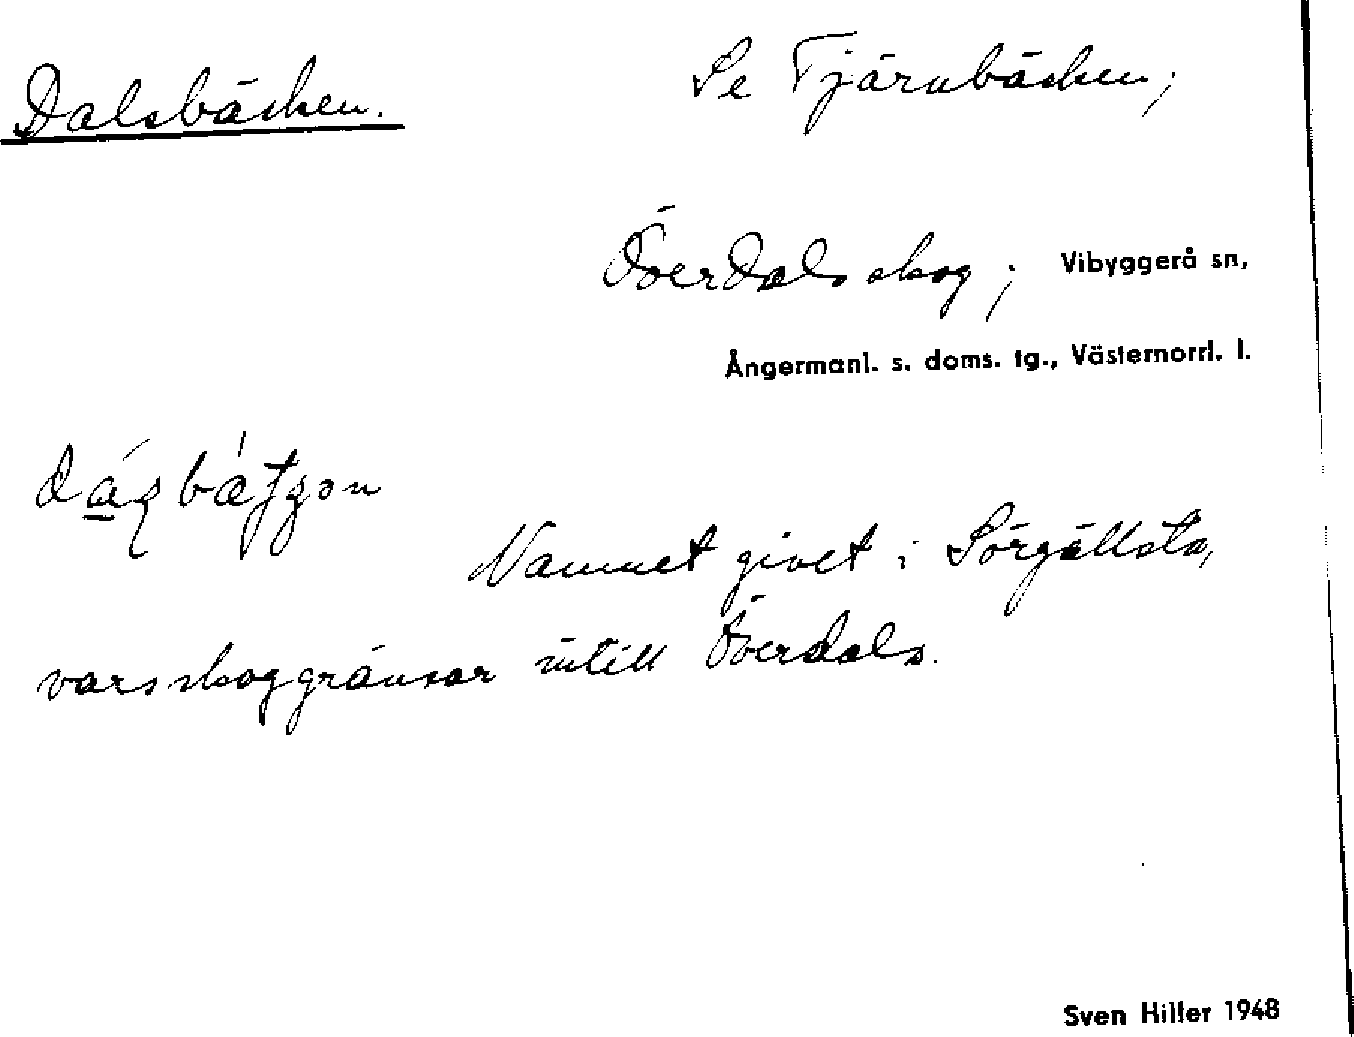 Dalsbäcken.
Se Tjärnbäcken;
Överdals skog; Vibyggerå sn,
Ångermanl. s. doms. tg., Västernorrl. l.
Namnet givet i Sörgällsta,
vars skog gränsar intill Överdals.
Sven Hiller 1948